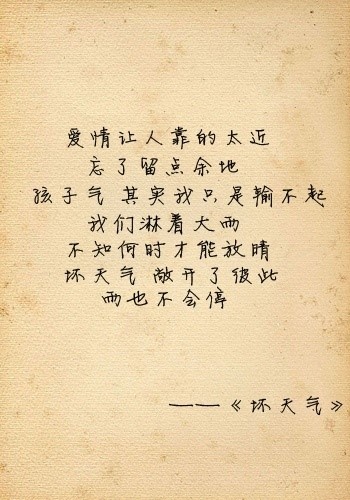 爱情让人靠的太近
忘了留点余地
孩子气 其实我只是输不起
我们淋着大雨
不知何时才能放晴
坏天气 敞开了彼此
雨也不会停
——《坏天气》